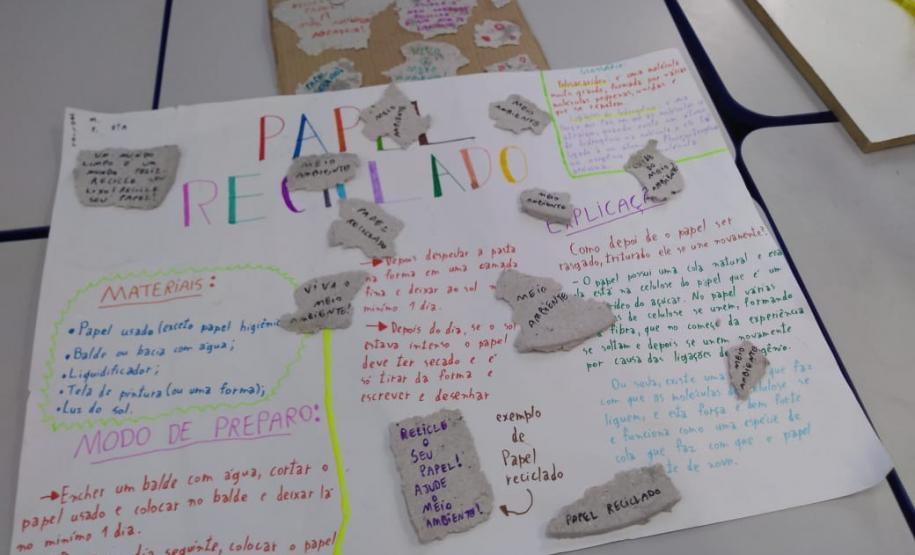 PAPEL
RECICLADO
UM MUNDO
LIMPO É UM
MUNDO FELIZ.
RECICLE SEU
LIXO! RECICLE
SEU PAPEL!
MEIO
AMBIENTE
MEIO
AMBIENTE
MEIO
AMBIENTE
PAPEL
RECICLADO
VIVA O
MEIO
AMBIENTE!
MATERIAIS:
• Papel usado (exceto papel higiênic
• Balde ou bacia com água;
• Liquidificador;
• Tela de pintura (ou uma forma);
• Luz do sol.
MODO DE PREPARO:
→ Encher um balde com água, cortar o
papel usado e colocar no balde e deixar lá
no mínimo 1 dia.
dia seguinte, colocar o papel
→ Depois despejar a pasta
na forma em uma camada
fina e deixar ao sol no
mínimo 1 dia.
→ Depois do dia, se o sol
estava intenso o papel
deve ter secado e é
só tirar da forma e
escrever e desenhar
RECICLE
O
SEU
PAPEL!
AJUDE
O
MEIO
AMBIENTE!
exemplo
de
Papel
reciclado
MEIO
AMBIENTE
Glossário:
é uma molécula
muito grande, formada por várias
moléculas pequenas, unidas e
que se repetem.
EXPLICAÇ
Como depois de o papel ser
rasgado, triturado ele se une novamente?
- O papel possui uma cola natural e essa
está na celulose do papel que é um
do açúcar. No papel várias
de celulose se unem, formando
fibra, que no começo da experiência
se soltam e depois se unem novamente
por causa das ligações de
MEIO
AMBIENTE
Ou seja, existe uma que faz
com que as moléculas de celulose se
liguem, e esta força é bem forte
e funciona como uma espécie de
cola que faz com que o papel
de novo.
PAPEL RECICLADO